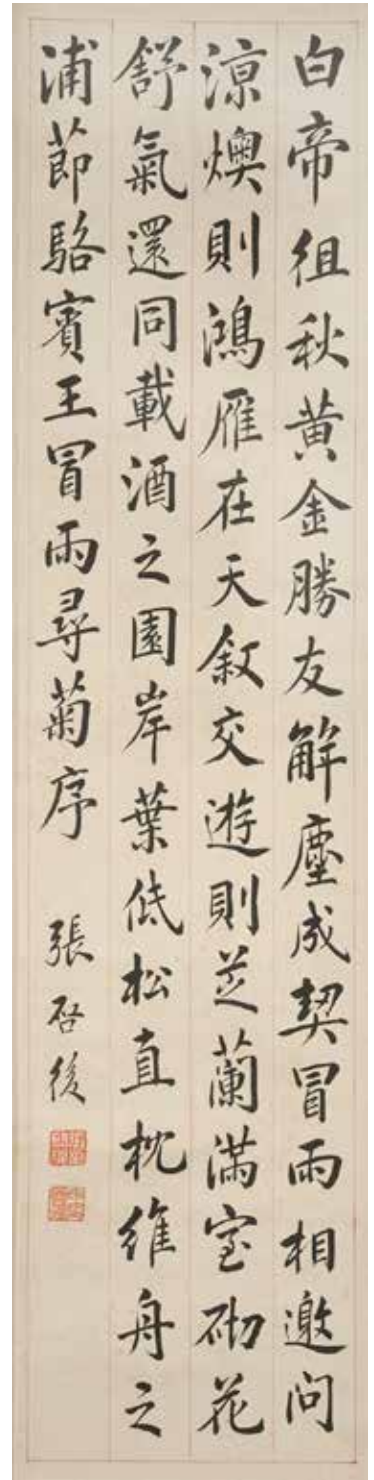 白帝徂秋黃金勝友解塵成契冒雨相邀問
涼燠則鴻雁在天叙交遊則芝蘭滿室砌花
舒氣還同載酒之園岸葉低松直枕維舟之
浦節駱賓王冒雨尋菊序
張啓後